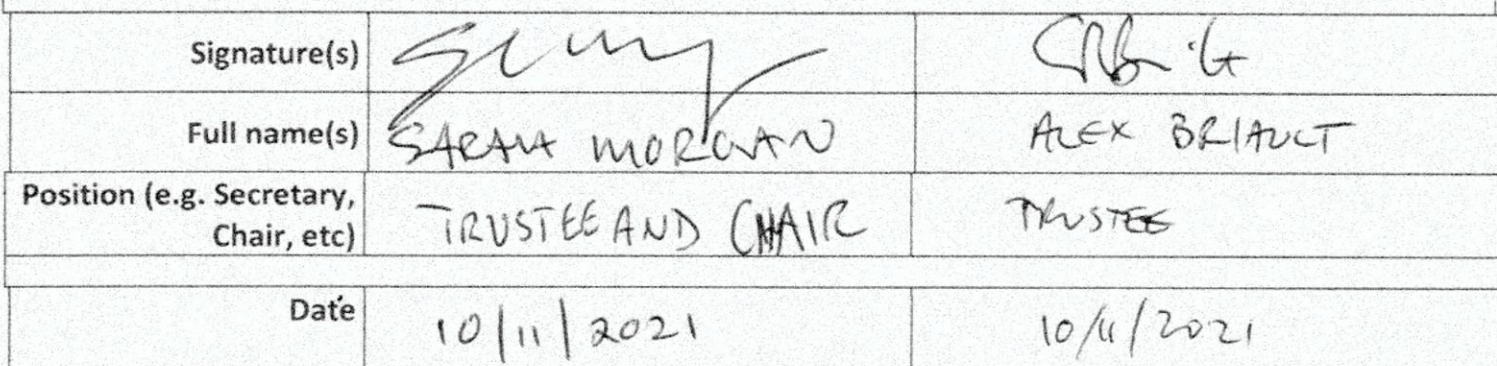 Signature(s)
Full name(s) SARAH MORGAN ALEX BRIAULT
Position (e.g. Secretary,
Chair, etc) TRUSTEE AND CHAIR TRUSTEE
Date 10/11/2021 10/11/2021